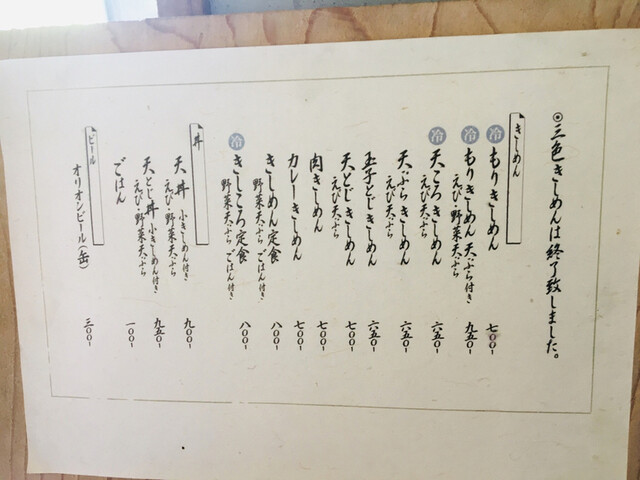 ◎三色きしめんは終了致しました。
きしめん
冷 もりきしめん 七00-
冷 もりきしめん 天ぷら付き 九五0-
えび・野菜天ぷら
冷 天ころきしめん 六五0-
えび天ぷら
天ぷらきしめん 六五0-
えび天ぷら
玉子とじきしめん 六五0-
天とじきしめん 七00-
えび天ぷら
肉きしめん 七00-
カレーきしめん 七00-
きしめん定食 八00-
野菜天ぷら ごはん付き
冷 きしころ定食 八00-
野菜天ぷら ごはん付き
丼
天丼 小きしめん付き 九00-
えび・野菜天ぷら
天とじ丼 小きしめん付き 九五0-
えび・野菜天ぷら
ごはん 一00-
ビール
オリオンビール(缶) 三00-